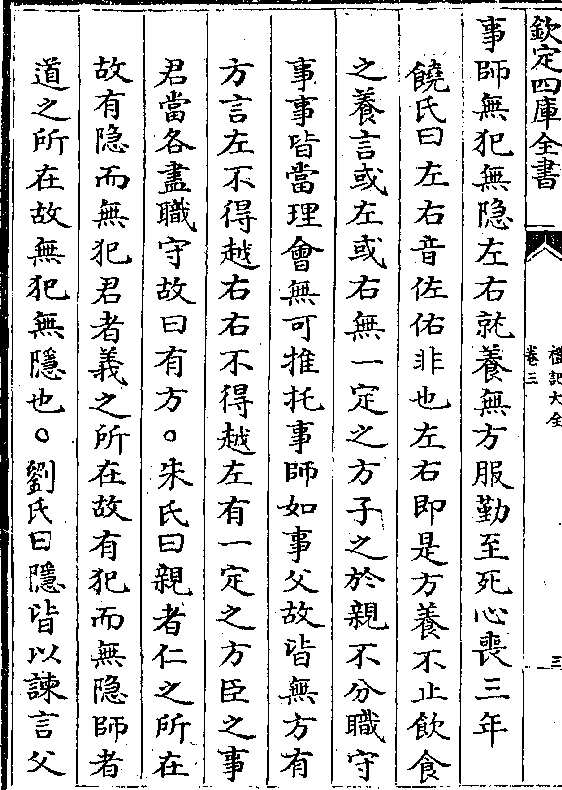 欽定四庫全書
禮記大全
卷三
三
事師無犯無隐左右就養無方服勤至死心喪三年
饒氏曰左右音佐佑非也左右即是方養不止飲食
之養言或左或右無一定之方子之於親不分職守
事事皆當理會無可推托事師如事父故皆無方有
方言左不得越右右不得越左有一定之方臣之事
君當各盡職守故曰有方。朱氏曰親者仁之所在
故有隐而無犯君者義之所在故有犯而無隐師者
道之所在故無犯無隱也。劉氏曰隱皆以諫言父